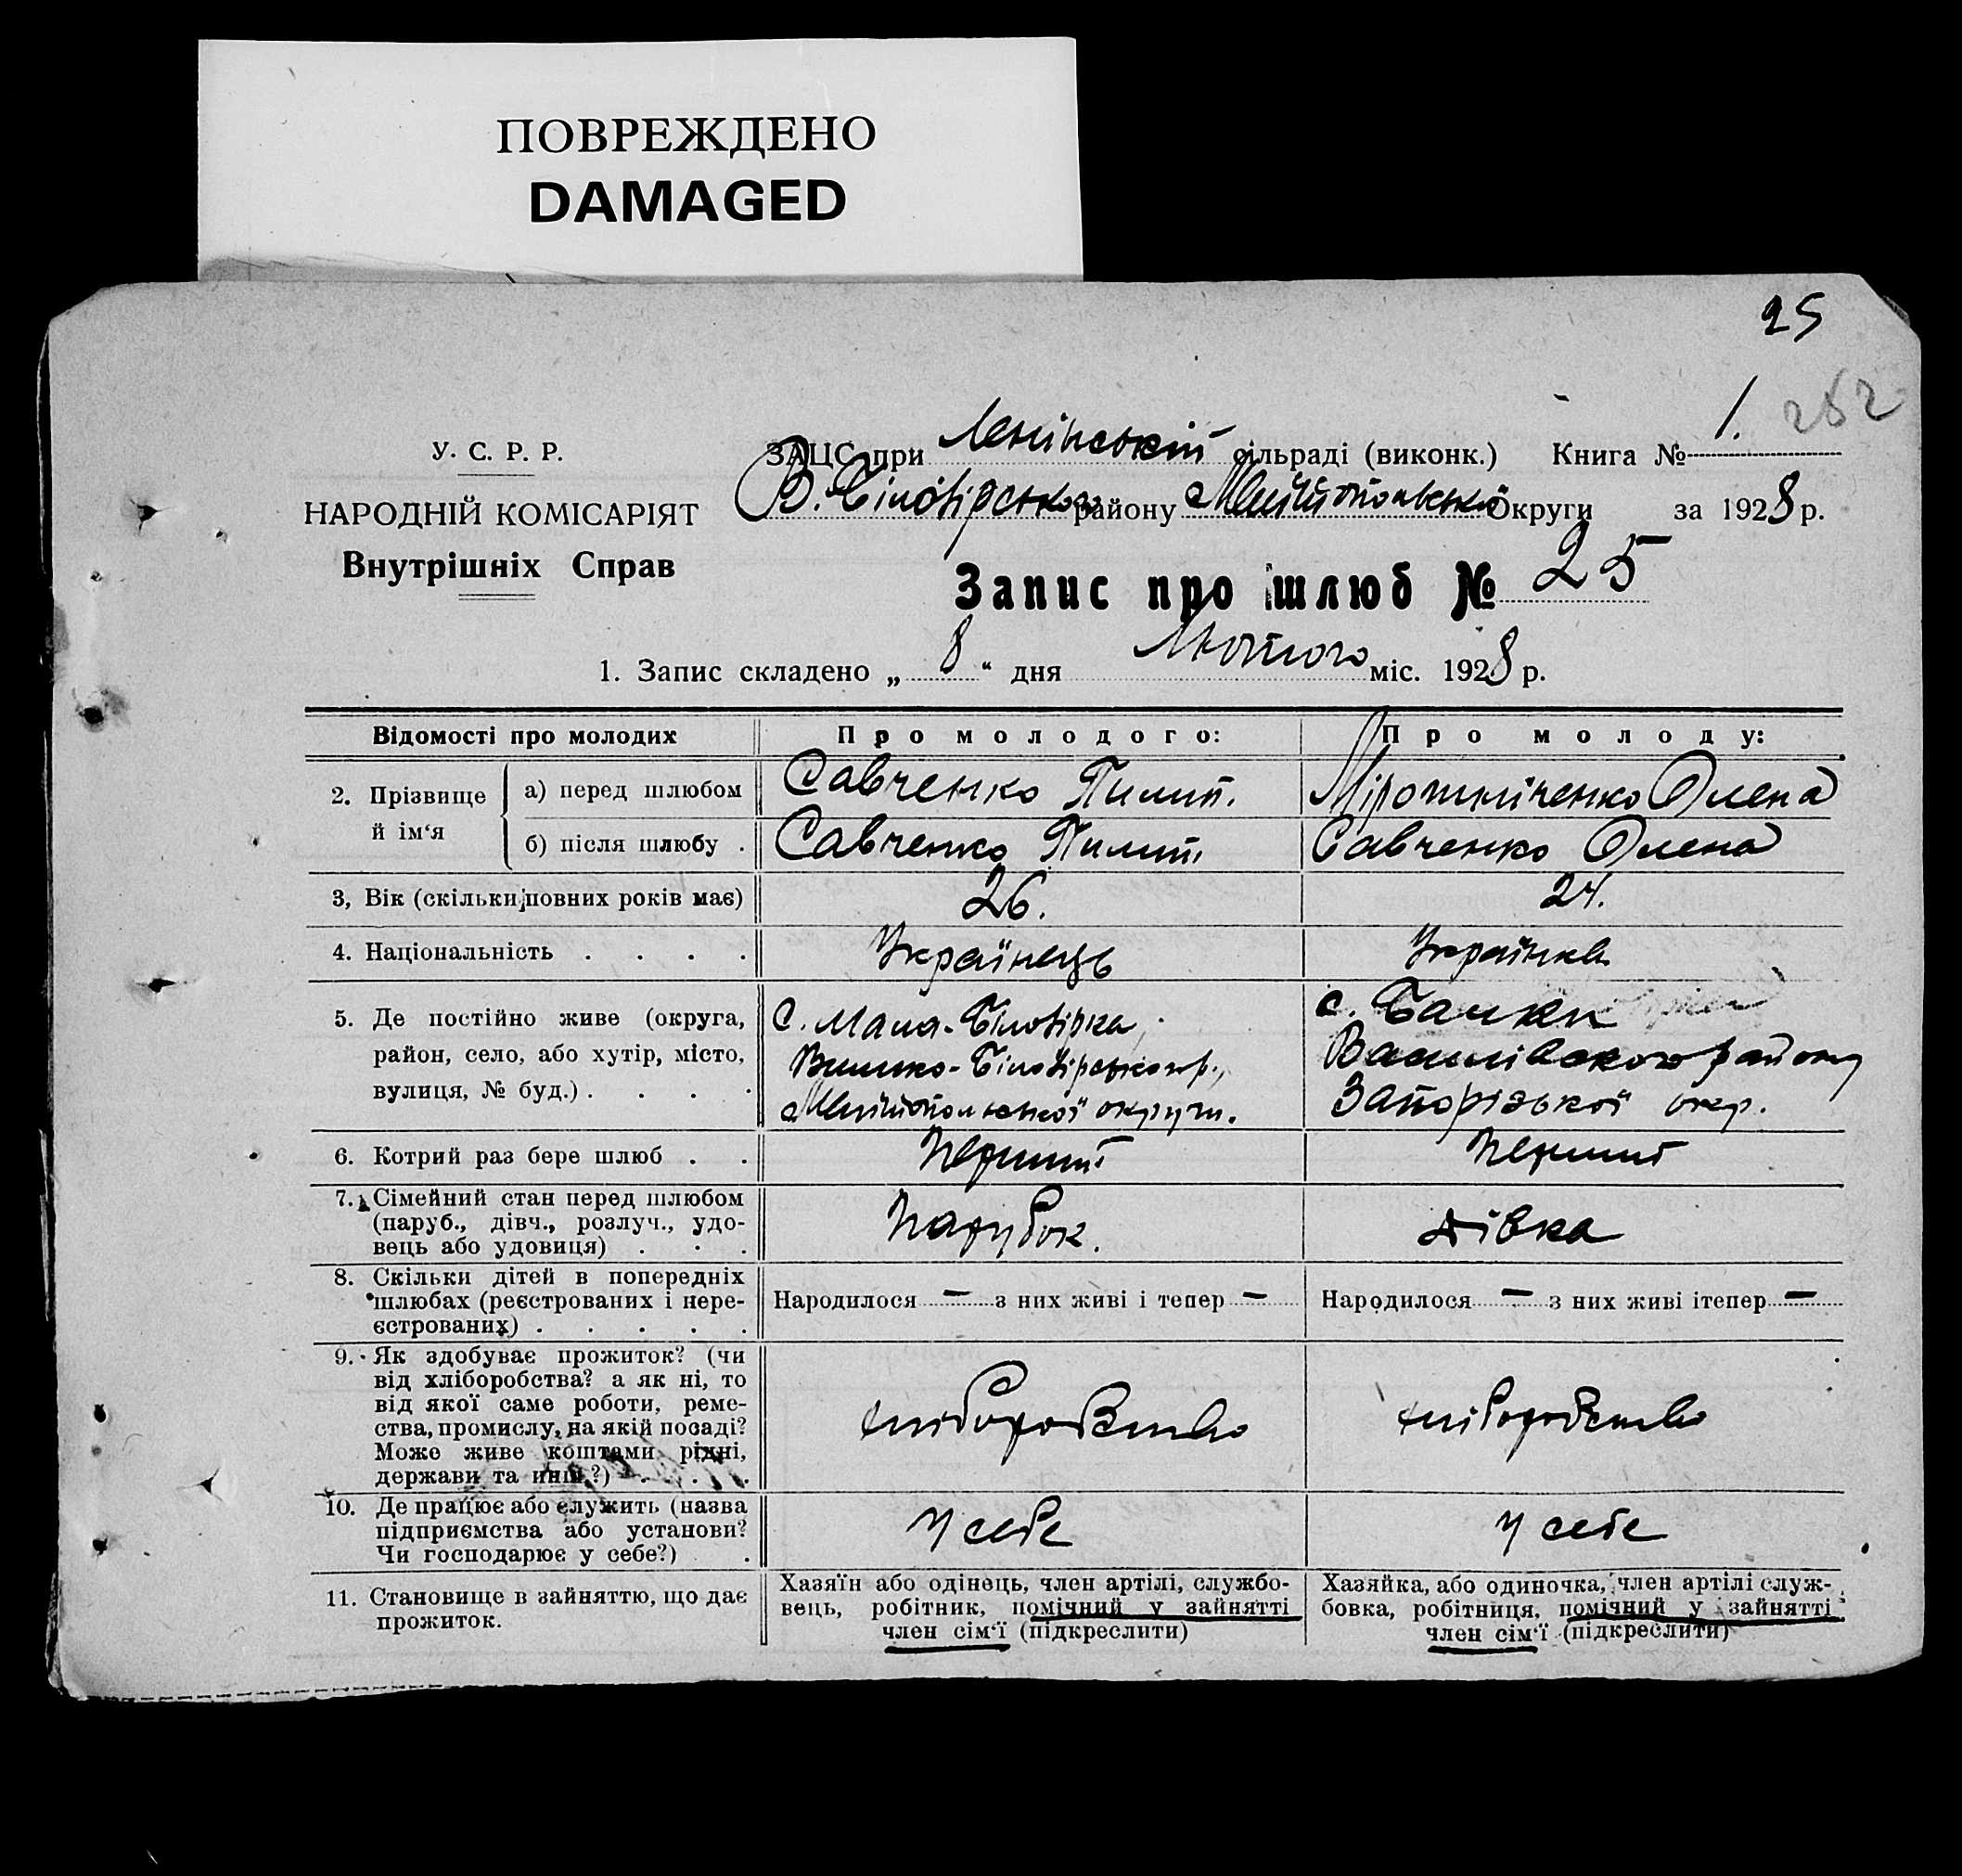 ПОВРЕЖДЕНО
DAMAGED
25
У. С. Р. Р.
НАРОДНІЙ КОМІСАРІЯТ
Внутрішніх Справ
ЗАЦС при Ленінській сільраді (виконк.) Книга № 1. 262
В.-Білозірського району Мелітопольської Округи за 1928 р.
Запис про шлюб № 25
1. Запис складено „ 8 “ дня Лютого міс. 1928 р.
Відомості про молодих Про молодого: Про молоду:
2. Прізвище й ім‘я
а) перед шлюбом Савченко Пилип. Мірошніченко Олена
б) після шлюбу . Савченко Пилип Савченко Олена
3, Вік (скільки повних років має) 26. 24.
4. Національність . . . . Українець Українка
5. Де постійно живе (округа,
район, село, або хутір, місто,
вулиця, № буд.) . . . .
с. Мала-Білозірка,
Велико-Білозірського р.,
Мелітопольської округи.
с. Балки
Василівского району
Запорізької окр.
6. Котрий раз бере шлюб . . Перший Перший
7. Сімейний стан перед шлюбом
(паруб., дівч., розлуч., удо-
вець або удовиця) . . .
Парубок. дівка
8. Скільки дітей в попередніх
шлюбах (реєстрованих і нере-
єстрованих) . . . . .
Народилося — з них живі і тепер —
Народилося — з них живі ітепер —
9. Як здобуває прожиток? (чи
від хліборобства? а як ні, то
від якої саме роботи, реме-
ства, промислу, на якій посаді?
Може живе коштами рідні,
держави та инш.?) . . .
хліборобство хліборобство
10. Де працює або служить (назва
підприємства або установи?
Чи господарює у себе?) .
у себе у себе
11. Становище в зайняттю, що дає
прожиток.
Хазяїн або одінець, член артілі, службо-
вець, робітник, помічний у зайнятті
член сім‘ї (підкреслити)
Хазяйка, або одиночка, член артілі служ-
бовка, робітниця, помічний у зайнятті
член сім‘ї (підкреслити)